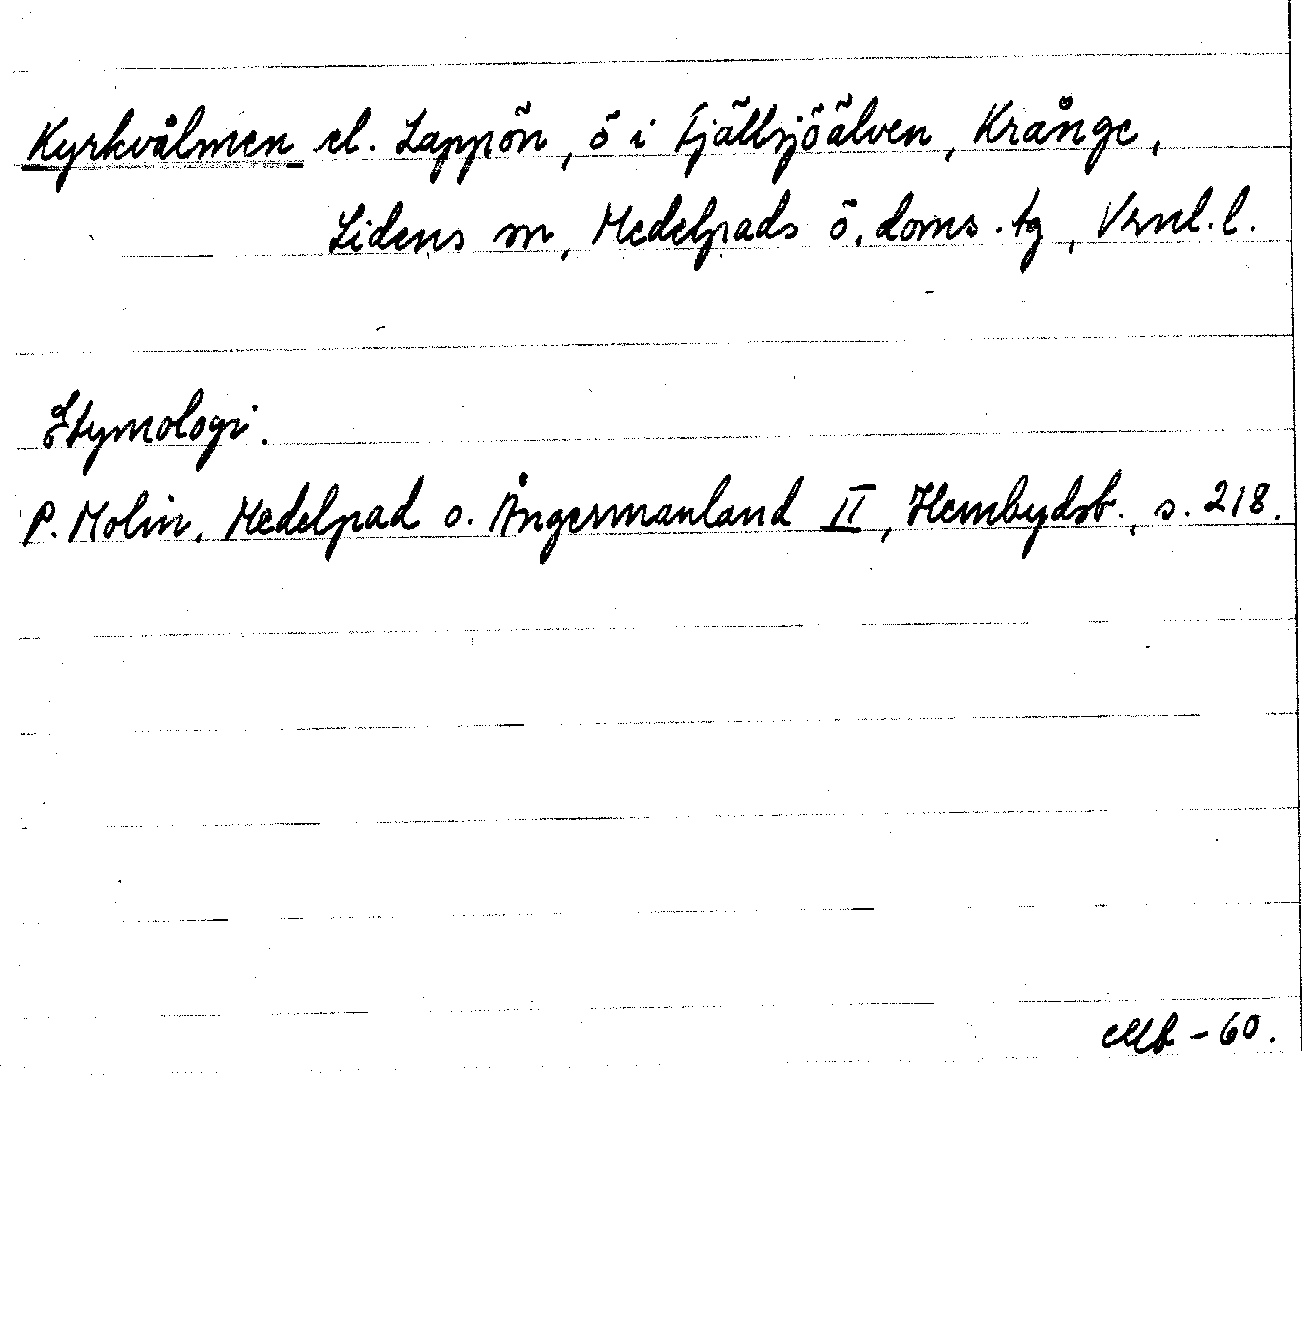 Kyrkvålmen el. Lappön, ö i Fjällsjöälven, Krånge,
Lidens sn, Medelpads ö. doms. tg, Vrnl. l.
Etymologi.
P. Molin, Medelpad o. Ångermanland II, Hembydsb., s. 218.
- 60.